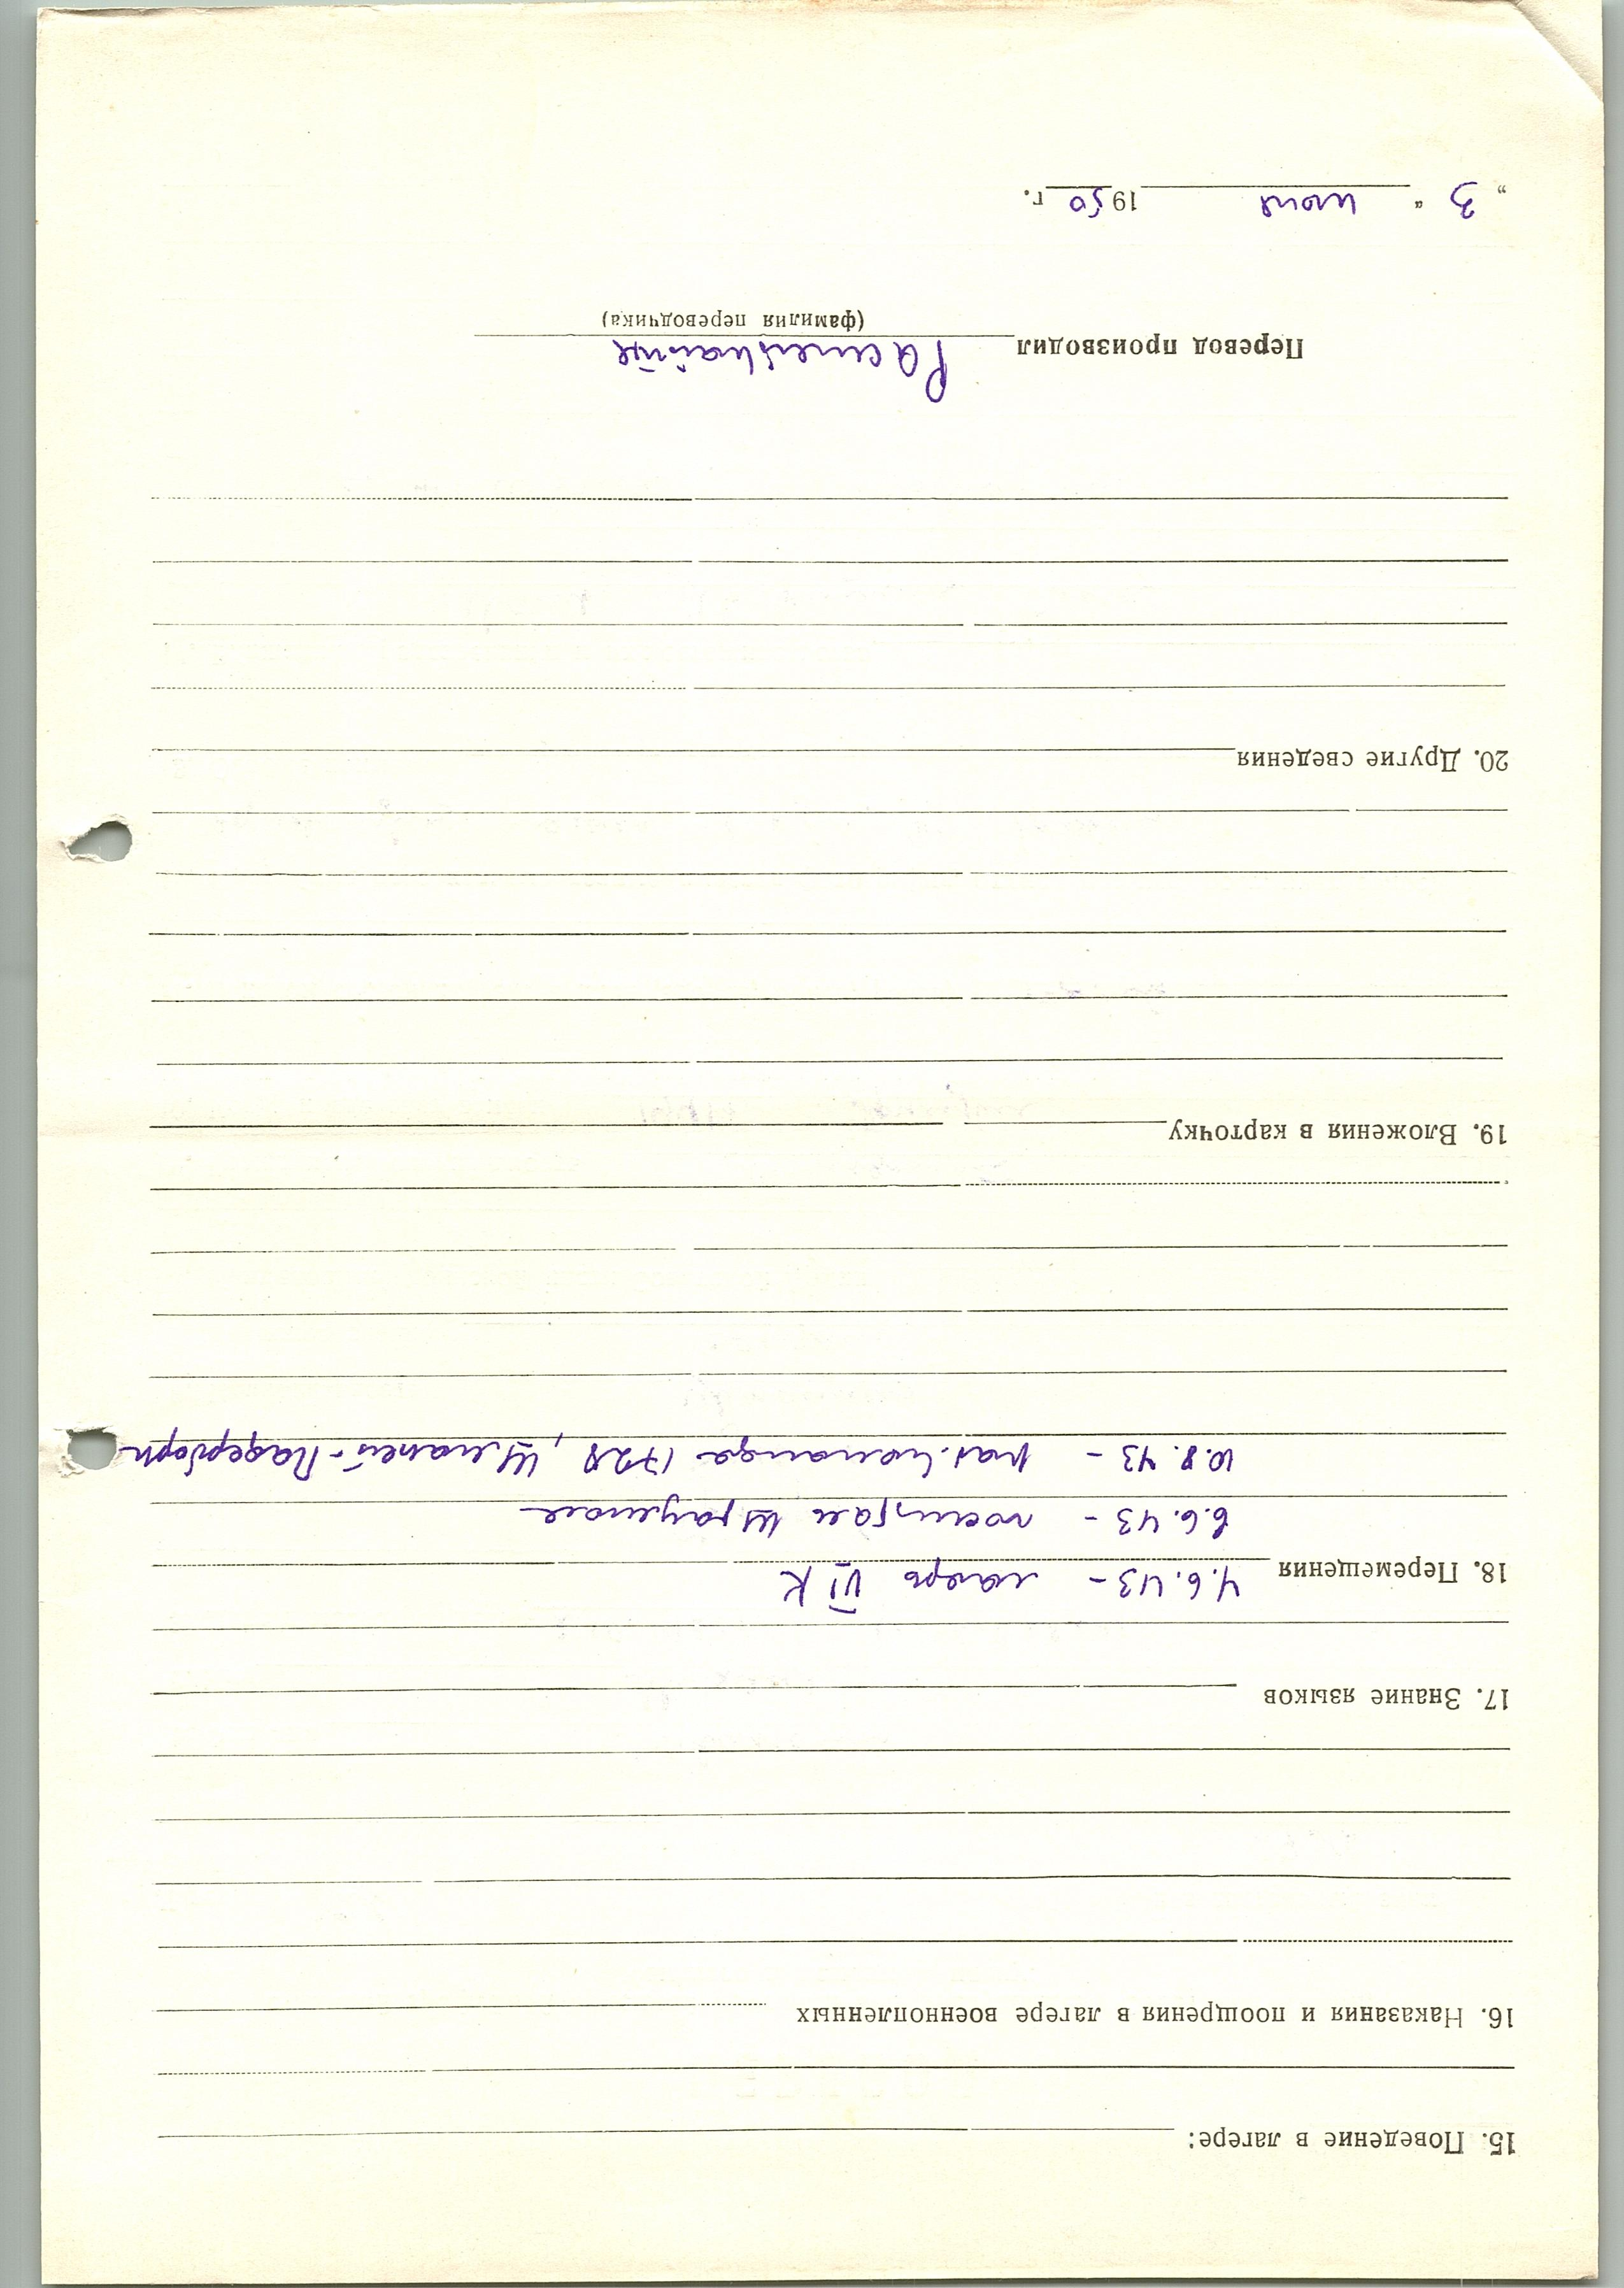 15. Поведение в лагере:
16. Наказания и поощрения в лагере военнопленных
17. Знание языков
18. Перемещения 4.6.43 – лагерь VI К
6.6.43 – госпиталь
10.8.43 – раб. команда 1728, - Падерборн
19. Вложения в карточку
20. Другие сведения
Перевод производил
(фамилия переводчика)
„ 3 “ июня 1950 г.